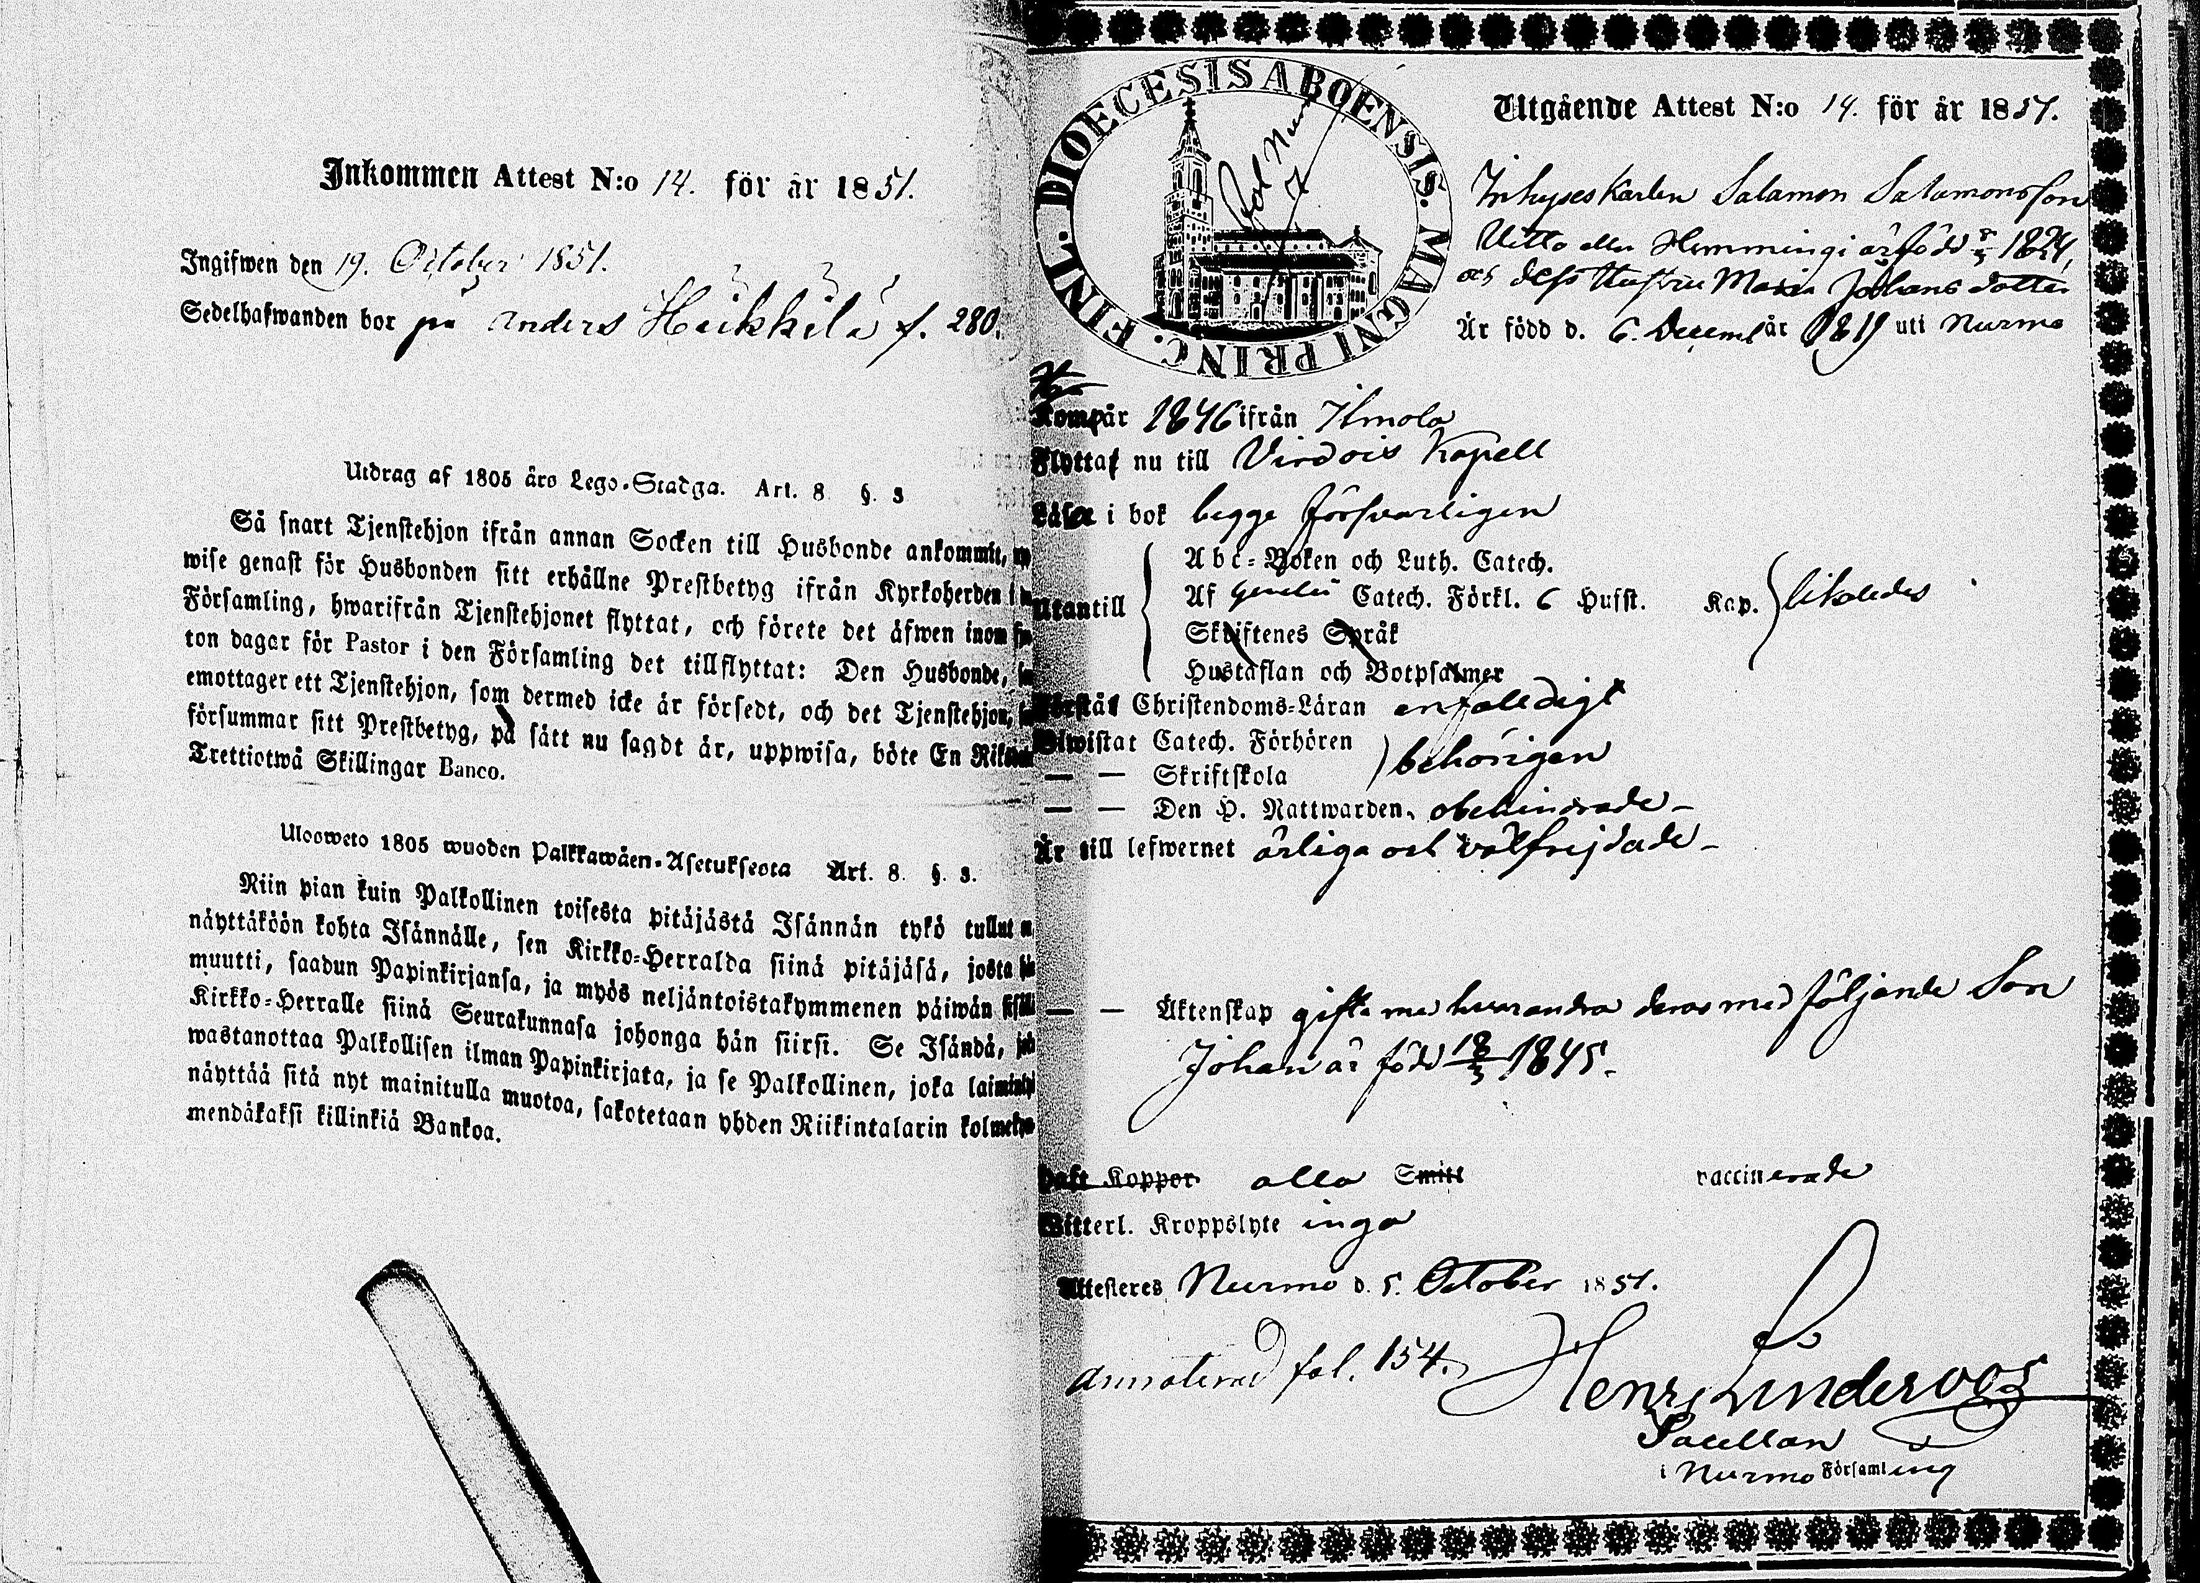 Inkommen Attest N:o 14. för år 1851.
Ingifwen den 19. October 1851.
Sedelhafwanden bor på Anders Heikkilä f. 280.
Utdrag af 1805 års Lego-Stadga. Art. 8 §. 3
Så snart Tjenstehjon ifrån annan Socken till Husbonde ankommit,
wise genast för Husbonden sitt erhållne Prestbetyg ifrån Kyrkoherden i
Församling, hwarifrån Tjenstehjonet flyttat, och förete det äfwen inom
ton dagar för Pastor i den Församling det tillflyttat: Den Husbonde,
emottager ett Tjenstehjon, som dermed icke är försedt, och det Tjenstehjon,
försummar sitt Prestbetyg, på sätt nu sagdt är, uppwisa, böte En
Trettiotwå Skillingar Banco.
Ulosweto 1805 wuoden Palkkawäen-Asetuksesta Art. 8. §. 3.
Niin pian kuin Palkollinen toisesta pitäjästä Isännän tykö tullut
näyttäköön kohta Isännälle, sen Kirkko-Herralda siinä pitäjäsä, josta
muutti, saadun Papinkirjansa, ja myös neljäntoistakymmenen päiwän
Kirkko-Herralle siinä Seurakunnasa johonga hän siirsi. Se Isändä,
wastanottaa Palkollisen ilman Papinkirjata, ja se Palkollinen, joka
näyttää sitä nyt mainitulla muotoa, sakotetaan yhden Riikintalarin
mendäkaksi killinkiä Bankoa.
FINL. DIOECESIS ABOENSIS. MAGNI PRINC.
Utgående Attest N:o 14. för år 1851.
Inhyses Karlen Salamon Salamonsson
eller Hemmingi är född 1824,
och dess Hustru Maria Johans dotter
Är född d. 6. Decemb år 1819 uti Nurmo
Kom år 1846 ifrån Ilmola
Flytta nu till Virdois Kapell
Läsa i bok begge försvarligen
Utantill
Abc-Boken och Luth. Catech.
Af Catech. Förkl. 6 Hufst. Kap. likaledes
Skriftenes Språk
Hustaflan och Botpsalmer
Förstå Christendoms-Läran enfaldigt
Biwistat Catech. Förhören
— — Skriftskola behörigen
— — Den H. Nattwarden, obehindrade
Är till lefwernet ärliga och välfrejdade
— — Äktenskap gifta med hvarandra deras med följande Son
Johan är född 18/5 1845.
Haft Koppor alla Smitt vaccinerade
Witterl. Kroppslyte inga
Attesteres Nurmo d. 5. October 1851.
Annoterad fol. 154.
Henr Linderoos
Sacellan
i Nurmo Församling